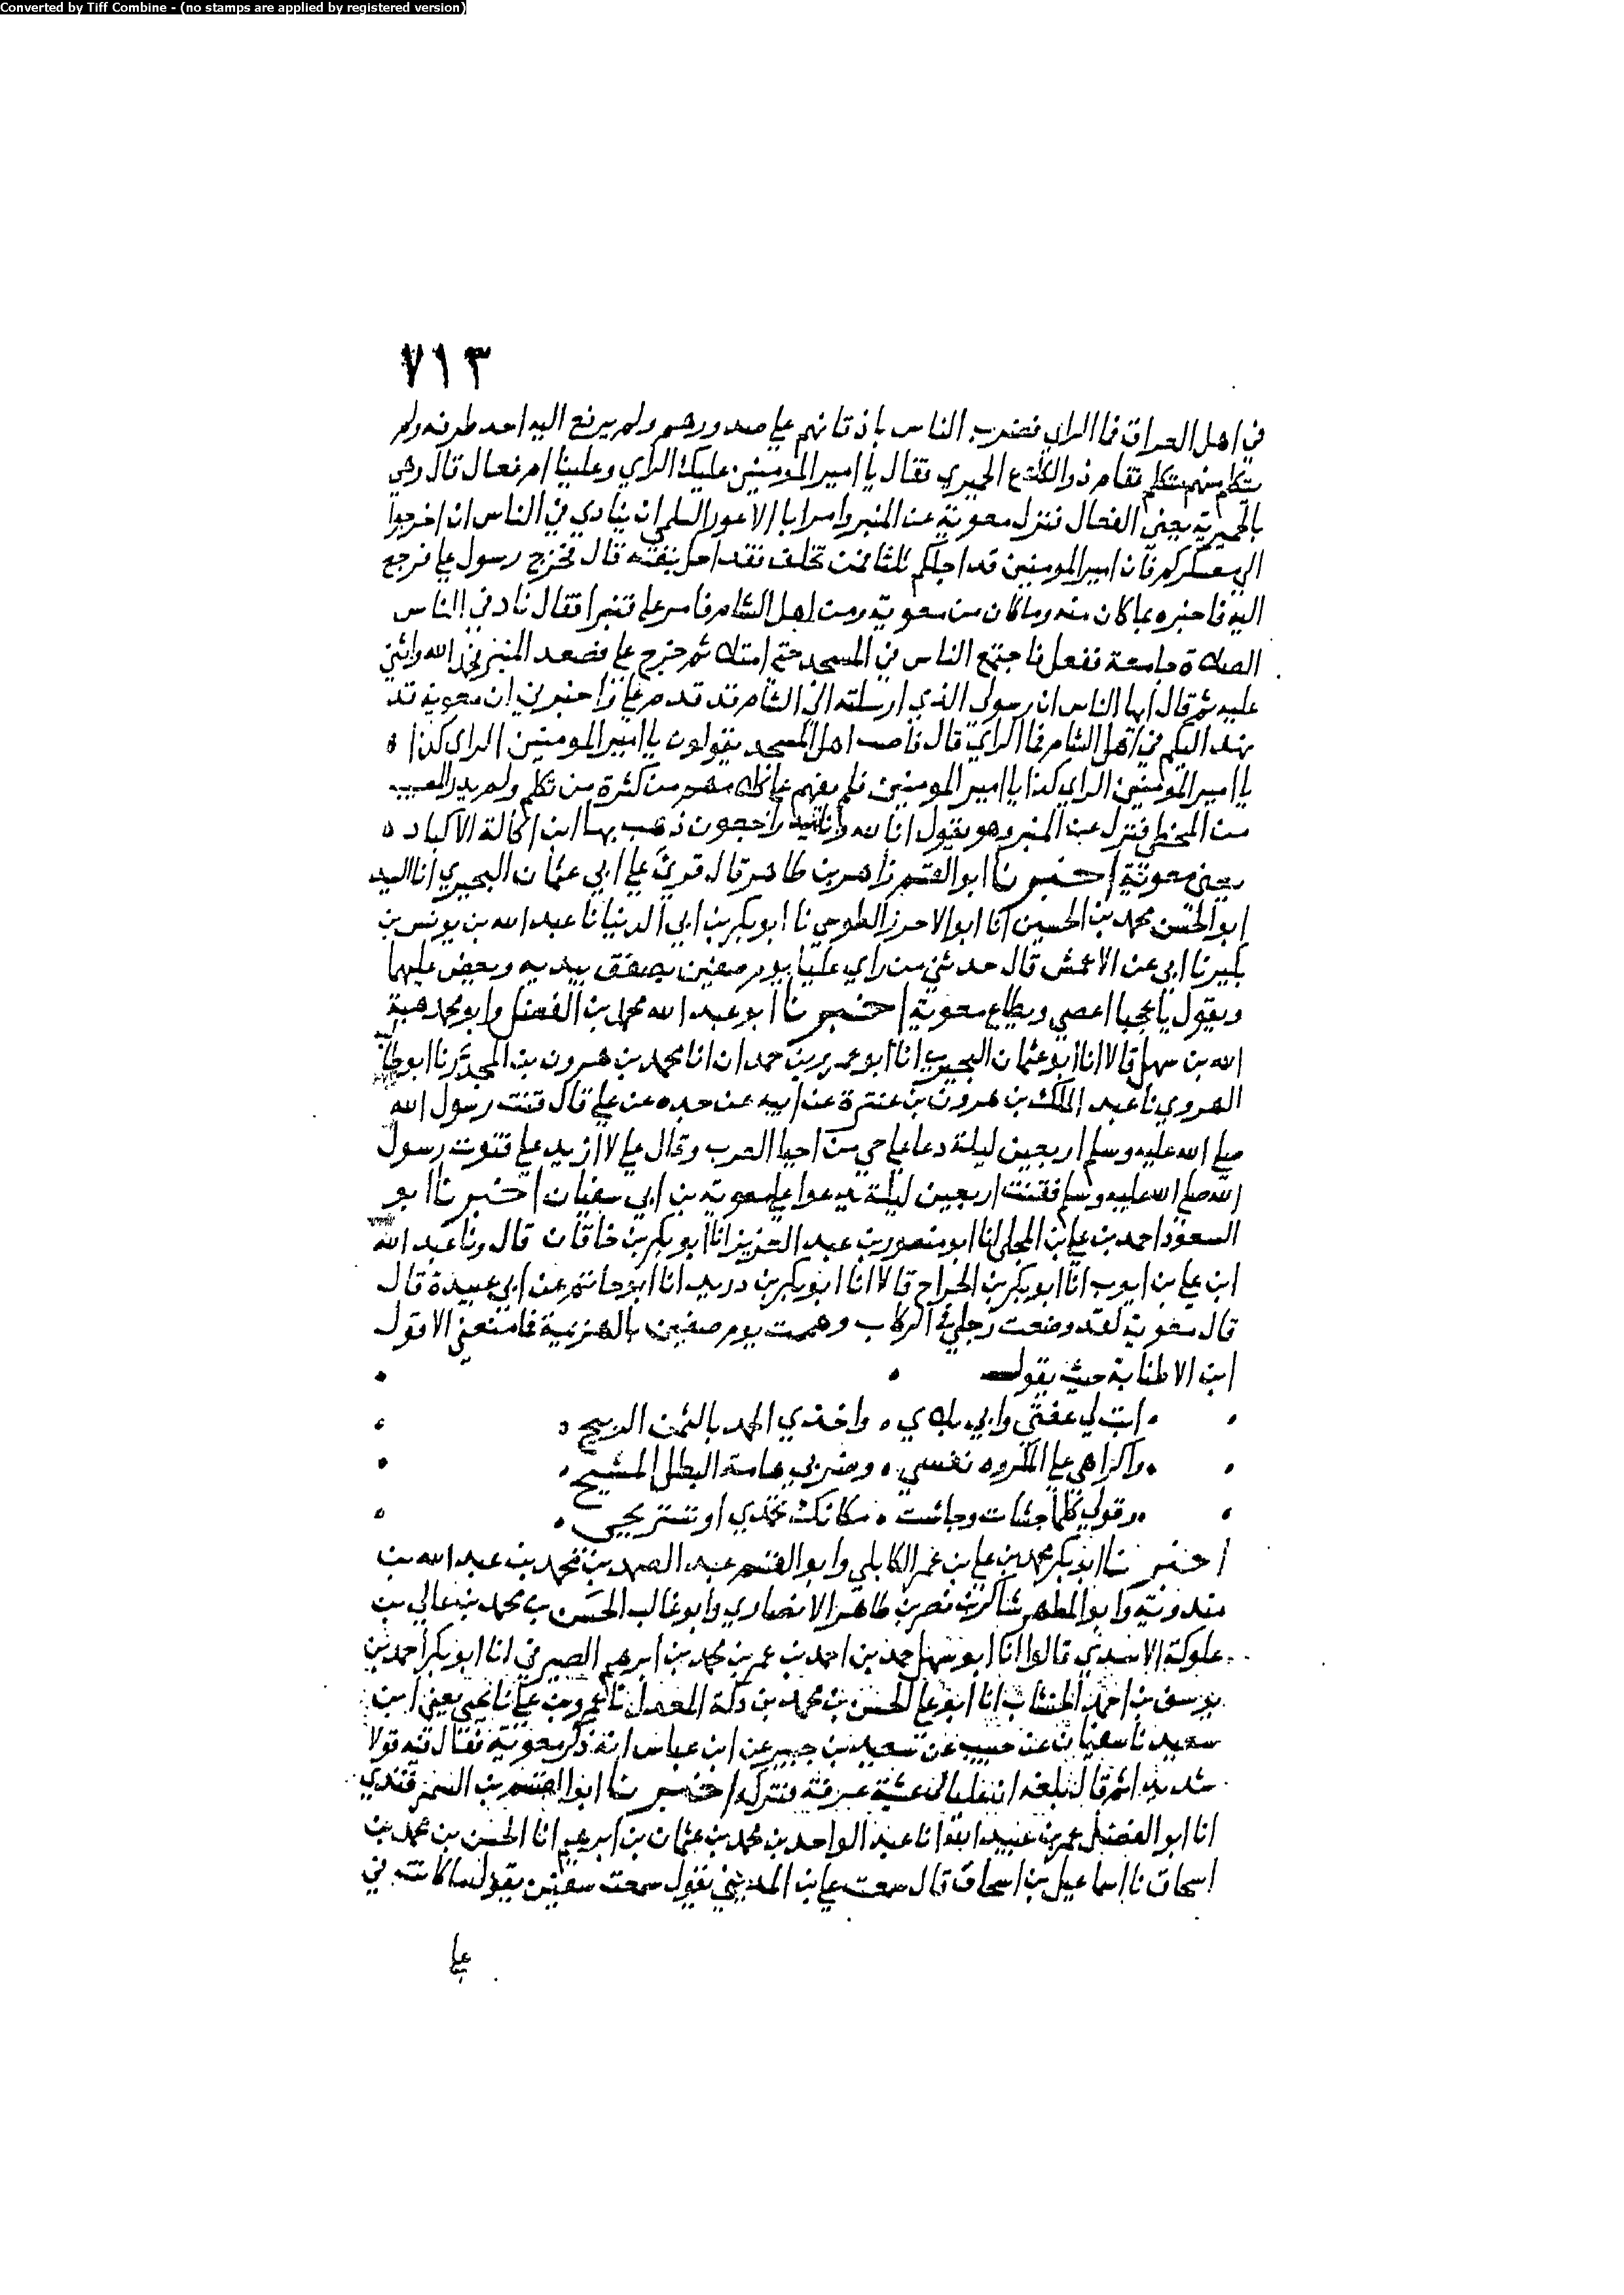 Converted by Tiff Combine - (no stamps are applied by registered version)
٧١٣
في اهل العراق فما الراي فضرب الناس باذقانهم على صدورهم ولم يرفع اليه احد طرفه ولم
يتكلم منهم متكلم فقام ذو الكلاع الحميري فقال يا امير المومنين عليك الراي وعلينا ام فعال قال وهي
بالحميرية يعني الفعال فنزل معوية عن المنبر وامر ابا الاعور السلمي ان ينادي في الناس ان اخرجوا
الى معسكركم فان امير المومنين قد اجلكم ثلثا فمن تخلف فقد احل بنفسه قال فخرج رسول علي فرجع
اليه فاخبره بما كان منه وما كان من معوية ومن اهل الشام فامر علي قنبرا فقال ناد في الناس
الصلاة جامعة ففعل فاجتمع الناس في المسجد حتى امتلا ثم خرج علي فصعد المنبر فحمد الله واثنى
عليه ثم قال ايها الناس ان رسولي الذي ارسلته الى الشام قد قدم علي واخبرني ان معوية قد
نهد اليكم في اهل الشام فما الراي قال فاضب اهل المسجد يقولون يا امير المومنين الراي كذا ه
يا امير المومنين الراي كذا يا امير المومنين فلم يفهم علي كلامهم من كثرة من تكلم ولم يدر المصيب
من المخطي فنزل عن المنبر وهو يقول انا لله وانا اليه راجعون ذهب بها ابن اكالة الاكباد ه
يعني معوية اخبرنا ابو القسم زاهر بن طاهر قال قرئ على ابي عثمان البحيري انا السيد
ابو الحسن محمد بن الحسين انا ابو الاحرز الطوسي نا ابو بكر بن ابي الدنيا نا عبد الله بن يونس بن
بكير نا ابي عن الاعمش قال حدثني من راي عليا يوم صفين يصفق بيديه ويعض عليهما
ويقول يا عجبا اعصى ويطاع معوية اخبرنا ابو عبد الله محمد بن الفضل وابو محمد هبة
الله بن سهل قالا انا ابو عثمان البحيري انا ابو عمرو بن حمدان انا محمد بن هرون بن المجدر نا ابو طالب
الهروي نا عبد الملك بن هرون بن عنترة عن ابيه عن جده عن علي قال قنت رسول الله
صلى الله عليه وسلم اربعين ليلة دعا على حي من احيا العرب وقال علي لا ازيد على قنوت رسول
الله صلى الله عليه وسلم فقنت اربعين ليلة يدعوا على معوية بن ابي سفيان اخبرنا ابو
السعود احمد بن علي بن المجلي انا ابو منصور بن عبد العزيز انا ابو بكر بن خاقان قال ونا عبد الله
ابن علي بن ايوب انا ابو بكر بن الجراح قالا انا ابو بكر بن دريد انا ابو حاتم عن ابي عبيدة قال
قال معوية لقد وضعت رجلي في الركاب وهممت يوم صفين بالهزيمة فما منعني الا قول
ابن الاطنابة حيث يقول
ابت لي عفتي وابى بلاي ، واخذي الحمد بالثمن الربيح
واكراهي على المكروه نفسي ، وضربي هامة البطل المشيح
وقولي كلما جشات وجاشت ، مكانك تحمدي او تستريحي
اخبرنا ابو بكر محمد بن علي بن عمر الكابلي وابو القسم عبد الصمد بن محمد بن عبد الله بن
مندويه وابو المطهر شاكر بن نصر بن طاهر الانصاري وابو غالب الحسن بن محمد بن عالي بن
علوكة الاسدي قالوا انا ابو سهل حمد بن احمد بن عمر بن محمد بن ابرهيم الصيرفي انا ابو بكر احمد بن
يوسف بن احمد الخشاب انا ابو علي الحسن بن محمد بن دكة المعدل نا عمرو بن علي نا يحيى يعني ابن
سعيد نا سفيان عن حبيب عن سعيد بن جبير عن ابن عباس انه ذكر معوية فقال فيه قولا
شديدا ثم قال بلغه ان عليا لبى عشية عرفة فتركه اخبرنا ابو القسم بن السمرقندي
انا ابو الفضل عمر بن عبيد الله انا عبد الواحد بن محمد بن عثمان بن ابرهيم انا الحسن بن محمد بن
اسحاق نا اسماعيل بن اسحاق قال سمعت علي بن المديني يقول سمعت سفين يقول ما كانت في
علي